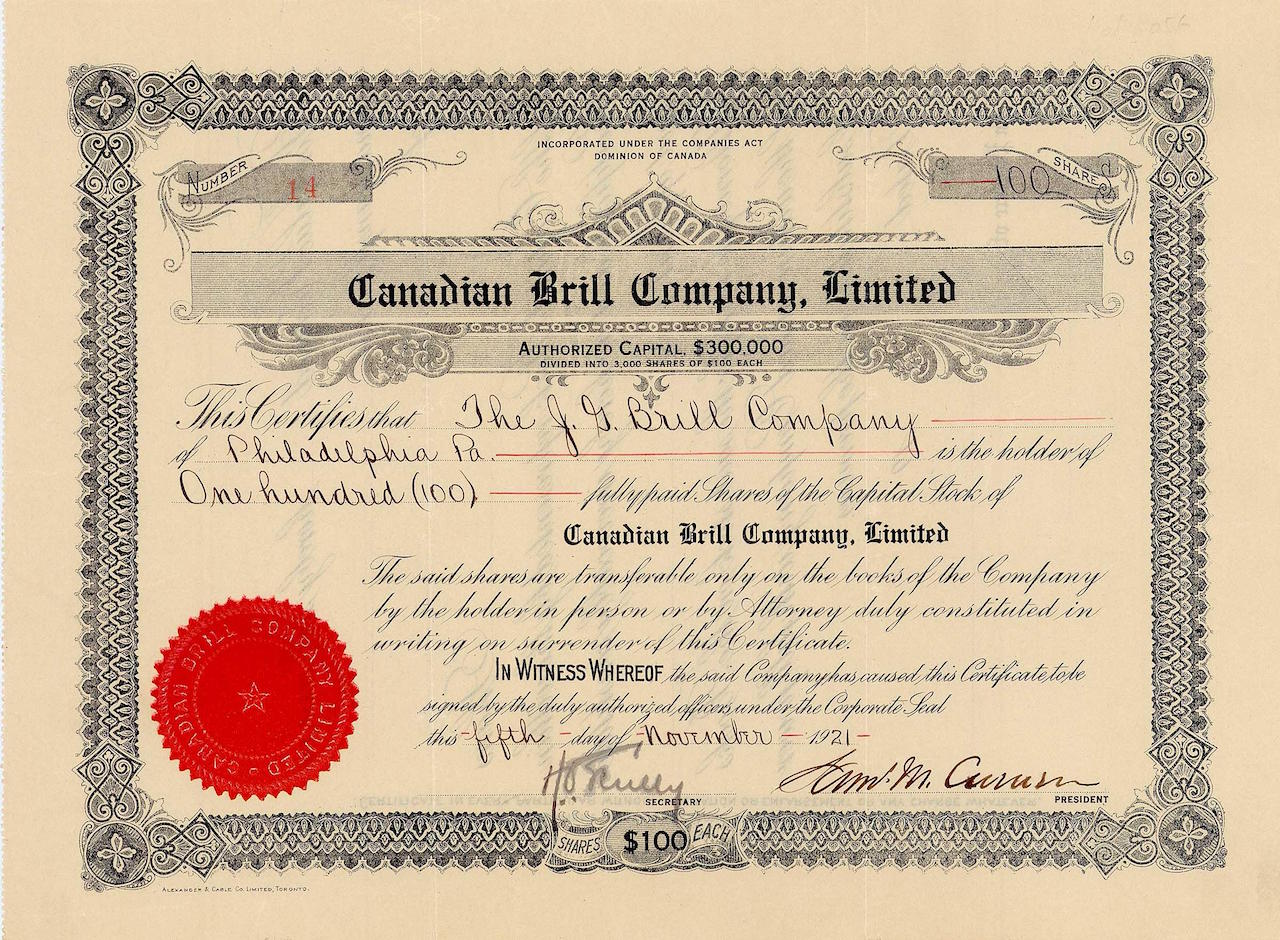 INCORPORATED UNDER THE COMPANIES ACT
DOMINION OF CANADA
NUMBER 14
100 SHARES
Canadian Brill Company, Limited
AUTHORIZED CAPITAL, $300,000
DIVIDED INTO 3,000 SHARES OF $100 EACH
This Certifies that The J. G. Brill Company
of Philadelphia Pa. is the holder of
One hundred (100) fully paid Shares of the Capital Stock of
Canadian Brill Company, Limited
The said shares are transferable only on the books of the Company
by the holder in person or by Attorney duly constituted in
writing on surrender of this Certificate.
IN WITNESS WHEREOF the said Company has caused this Certificate to be
signed by the duly authorized officers under the Corporate Seal
this fifth day of November 1921
SECRETARY
PRESIDENT
CANADIAN BRILL COMPANY LIMITED
SHARES $100 EACH
ALEXANDER & CABLE CO. LIMITED, TORONTO.